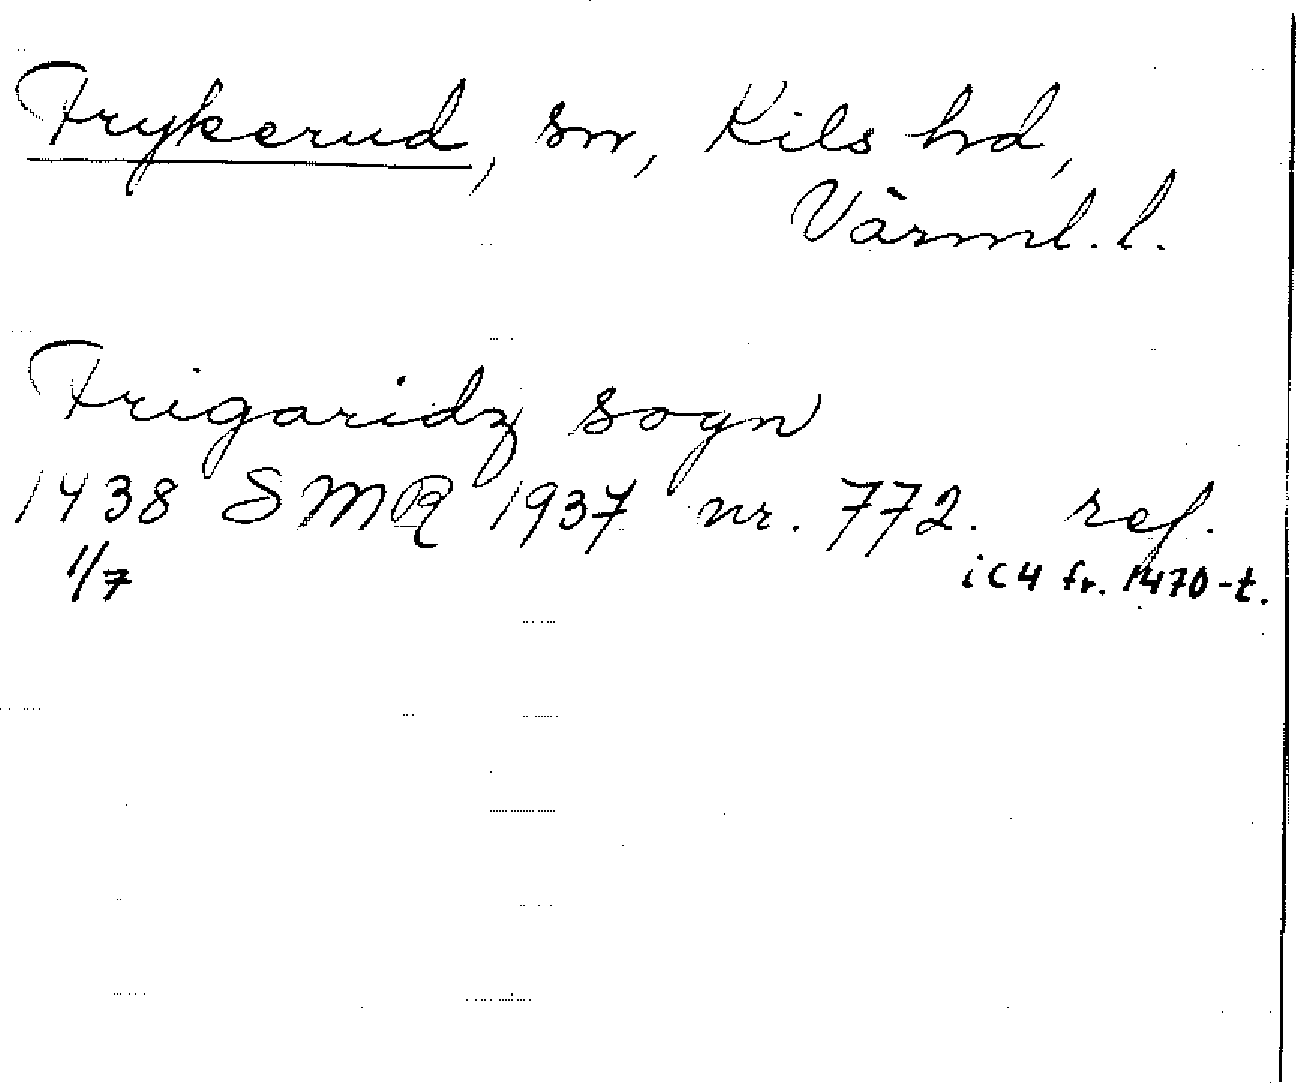 Frykerud, sn, Kils hd,
Värml. l.
Frigaridz sogn
1438 SMR 1937 nr. 772. ref.
1/7 i C4 fr. 1470-t.